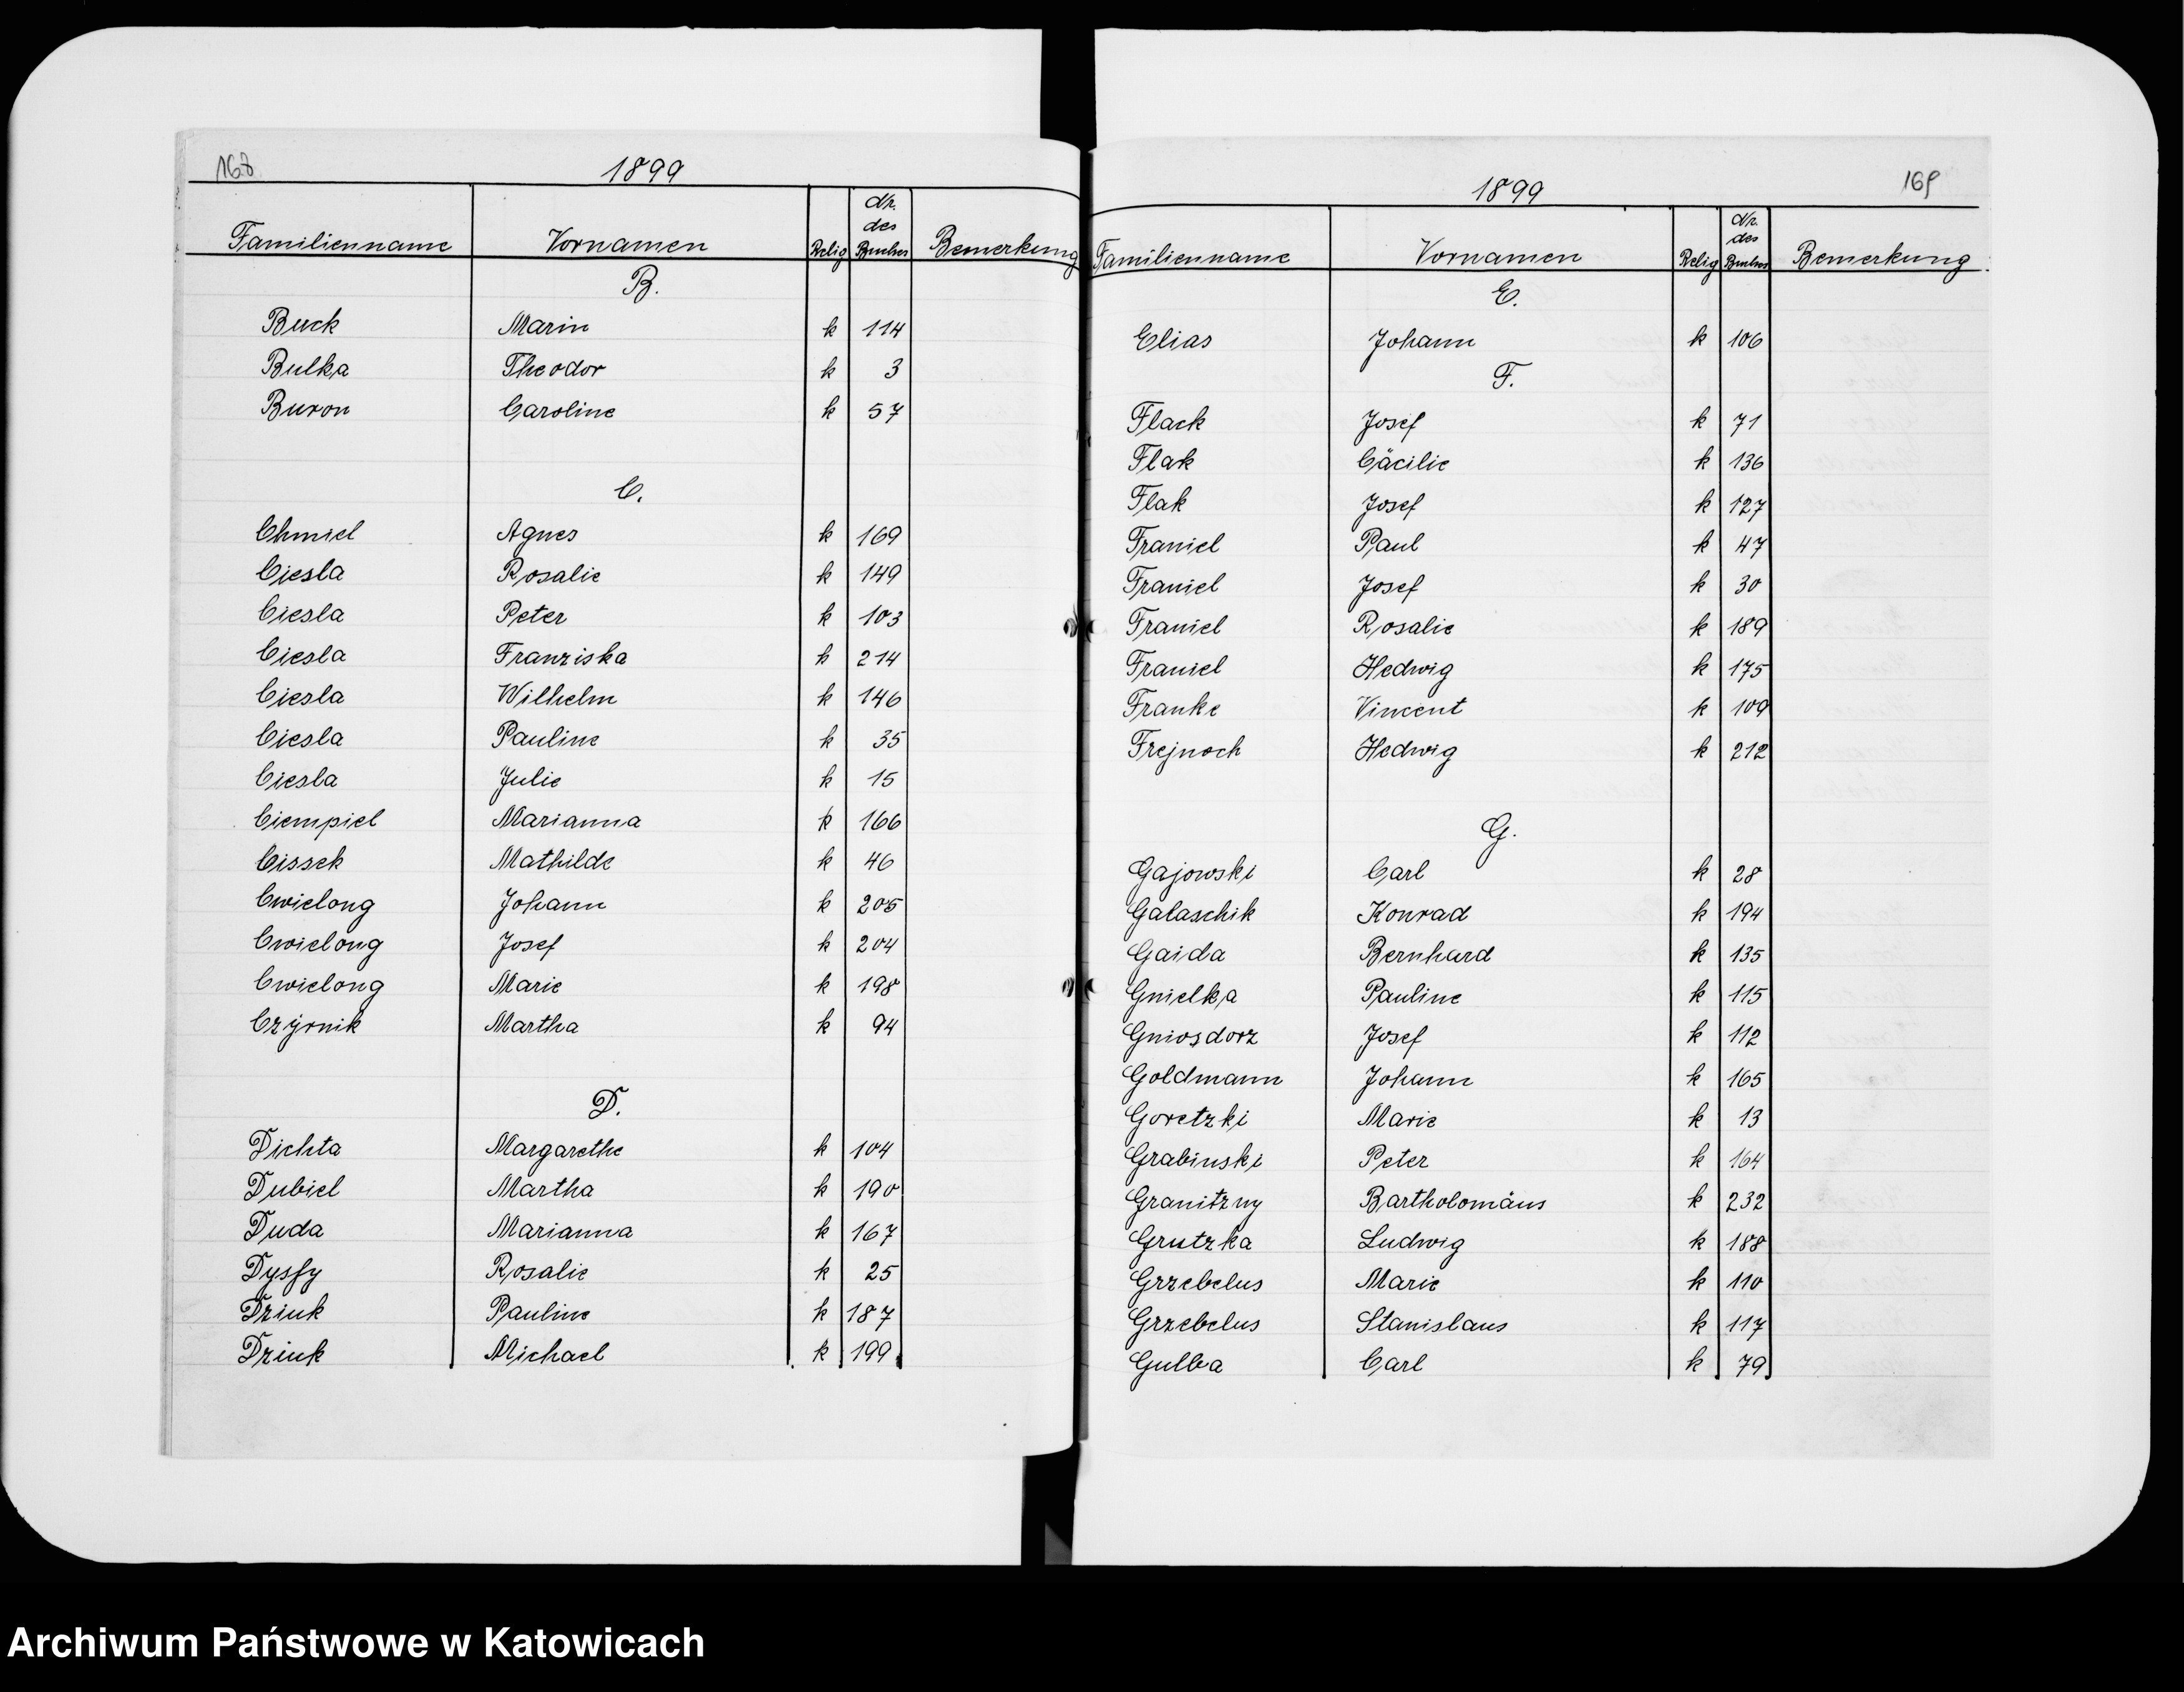 168
1899
Familienname Vornamen Relig Nr. des Buches Bemerkung
B.
Buck Marin k 114
Bulka Theodor k 3
Buron Caroline k 57
C.
Chmiel Agnes k 169
Ciesla Rosalie k 149
Ciesla Peter k 103
Ciesla Franziska k 214
Ciesla Wilhelm k 146
Ciesla Pauline k 35
Ciesla Julie k 15
Ciempiel Marianna k 166
Cissek Mathilde k 46
Cwielong Johann k 205
Cwielong Josef k 204
Cwielong Marie k 198
Martha k 94
D.
Dichta Margarethe k 104
Dubiel Martha k 190
Duda Marianna k 167
Rosalie k 25
Dziuk Pauline k 187
Dziuk Michael k 199
1899
169
Familienname Vornamen Relig Nr. des Buches Bemerkung
E.
Elias Johann k 106
F.
Flack Josef k 71
Flak Cäcilie k 136
Flak Josef k 127
Franiel Paul k 47
Franiel Josef k 30
Franiel Rosalie k 189
Franiel Hedwig k 175
Franke Vincent k 109
Frejnoch Hedwig k 212
G.
Gajowski Carl k 28
Galaschik Konrad k 194
Gaida Bernhard k 135
Gnielka Pauline k 115
Gniosdorz Josef k 112
Goldmann Johann k 165
Goretzki Marie k 13
Grabinski Peter k 164
Granitzny Bartholomäus k 232
Grutzka Ludwig k 188
Grzebelus Marie k 110
Grzebelus Stanislaus k 117
Gulba Carl k 79
Archiwum Państwowe w Katowicach